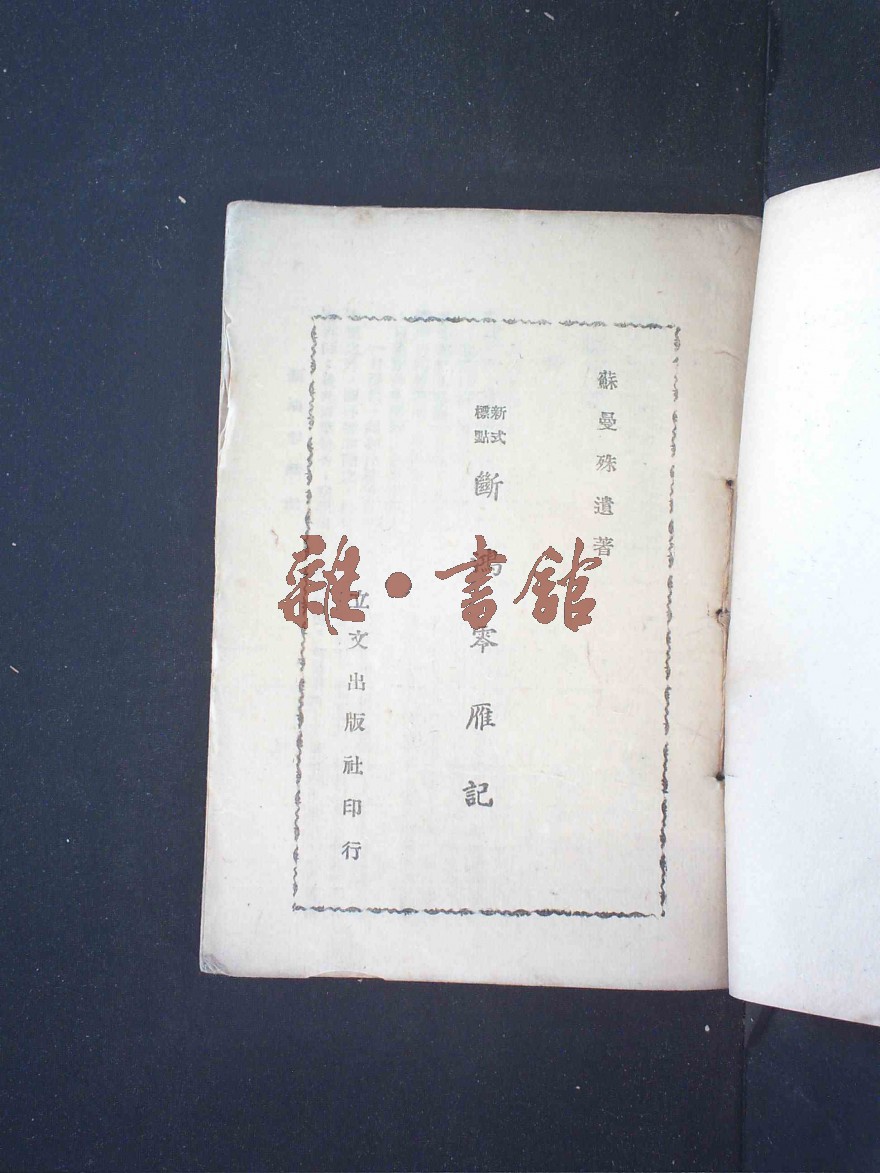 蘇曼殊遺著
新式
標點
斷鴻零雁記
立文出版社印行
雜·書館